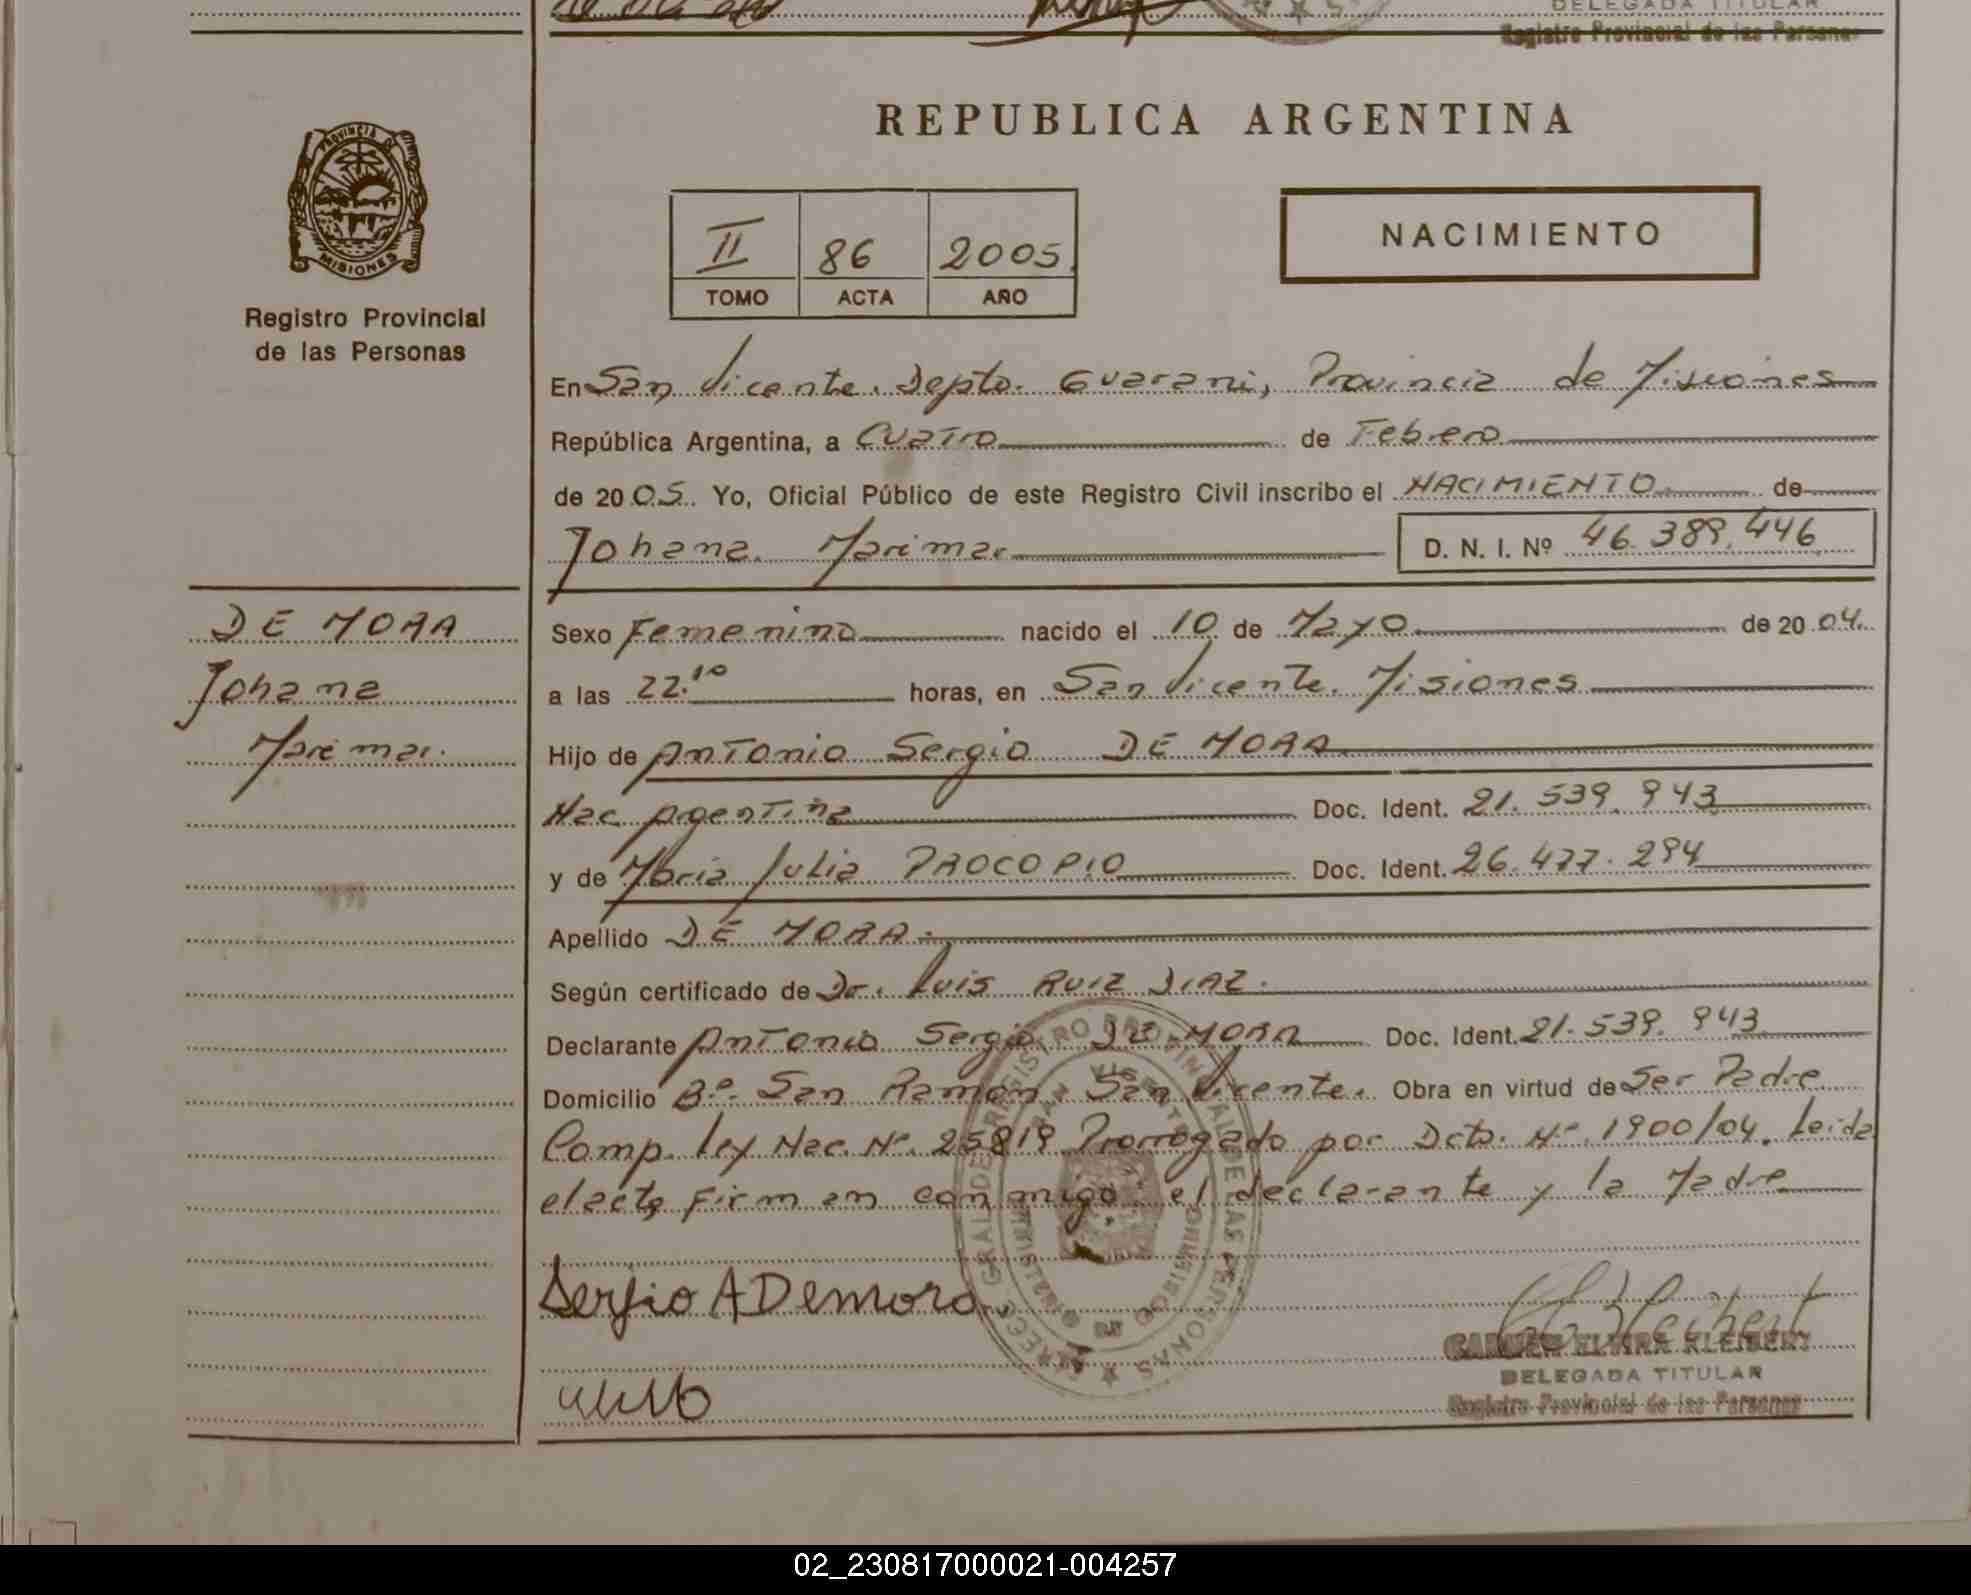 DELEGADA TITULAR
Registro Provincial de las Personas
REPUBLICA ARGENTINA
PROVINCIA DE MISIONES
Registro Provincial
de las Personas
II 86 2005
TOMO ACTA AÑO
NACIMIENTO
En San Vicente. Depto. Guarani, Provincia de Misiones
República Argentina, a Cuatro de Febrero
de 2005. Yo, Oficial Público de este Registro Civil inscribo el NACIMIENTO de
Johana Marimar D. N. I. Nº 46.389.446
DE MORA
Johana
Marimar.
Sexo Femenino nacido el 10 de Mayo de 2004.
a las 22.10 horas, en San Vicente. Misiones
Hijo de Antonio Sergio DE MORA
Nac. Argentina Doc. Ident. 21.539.943
y de Maria Julia PROCOPIO Doc. Ident. 26.477.294
Apellido DE MORA.
Según certificado de Dr. Luis RUIZ DIAZ.
Declarante Antonio Sergio DE MORA Doc. Ident. 21.539.943
Domicilio Bº. San Ramon San Vicente. Obra en virtud de Ser Padre
Comp. Ley Nac. Nº. 25819 Prorrogado por Dcto. Nº. 1900/04. Leida
el acta firman conmigo el declarante y la Madre
Sergio A Demora
CARMEN ELVIRA KLEIBERT
DELEGADA TITULAR
Registro Provincial de las Personas
02_230817000021-004257